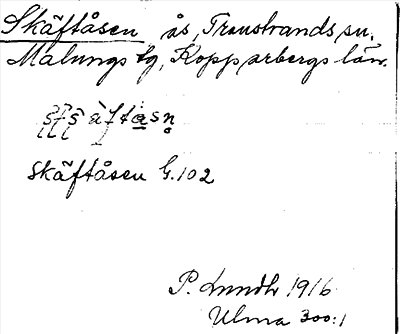 Skäftåsen ås, Transtrands sn.
Malungs tg, Kopparbergs län.
Skäftåsen G.102
P. Lundh 1916
Ulma 300:1